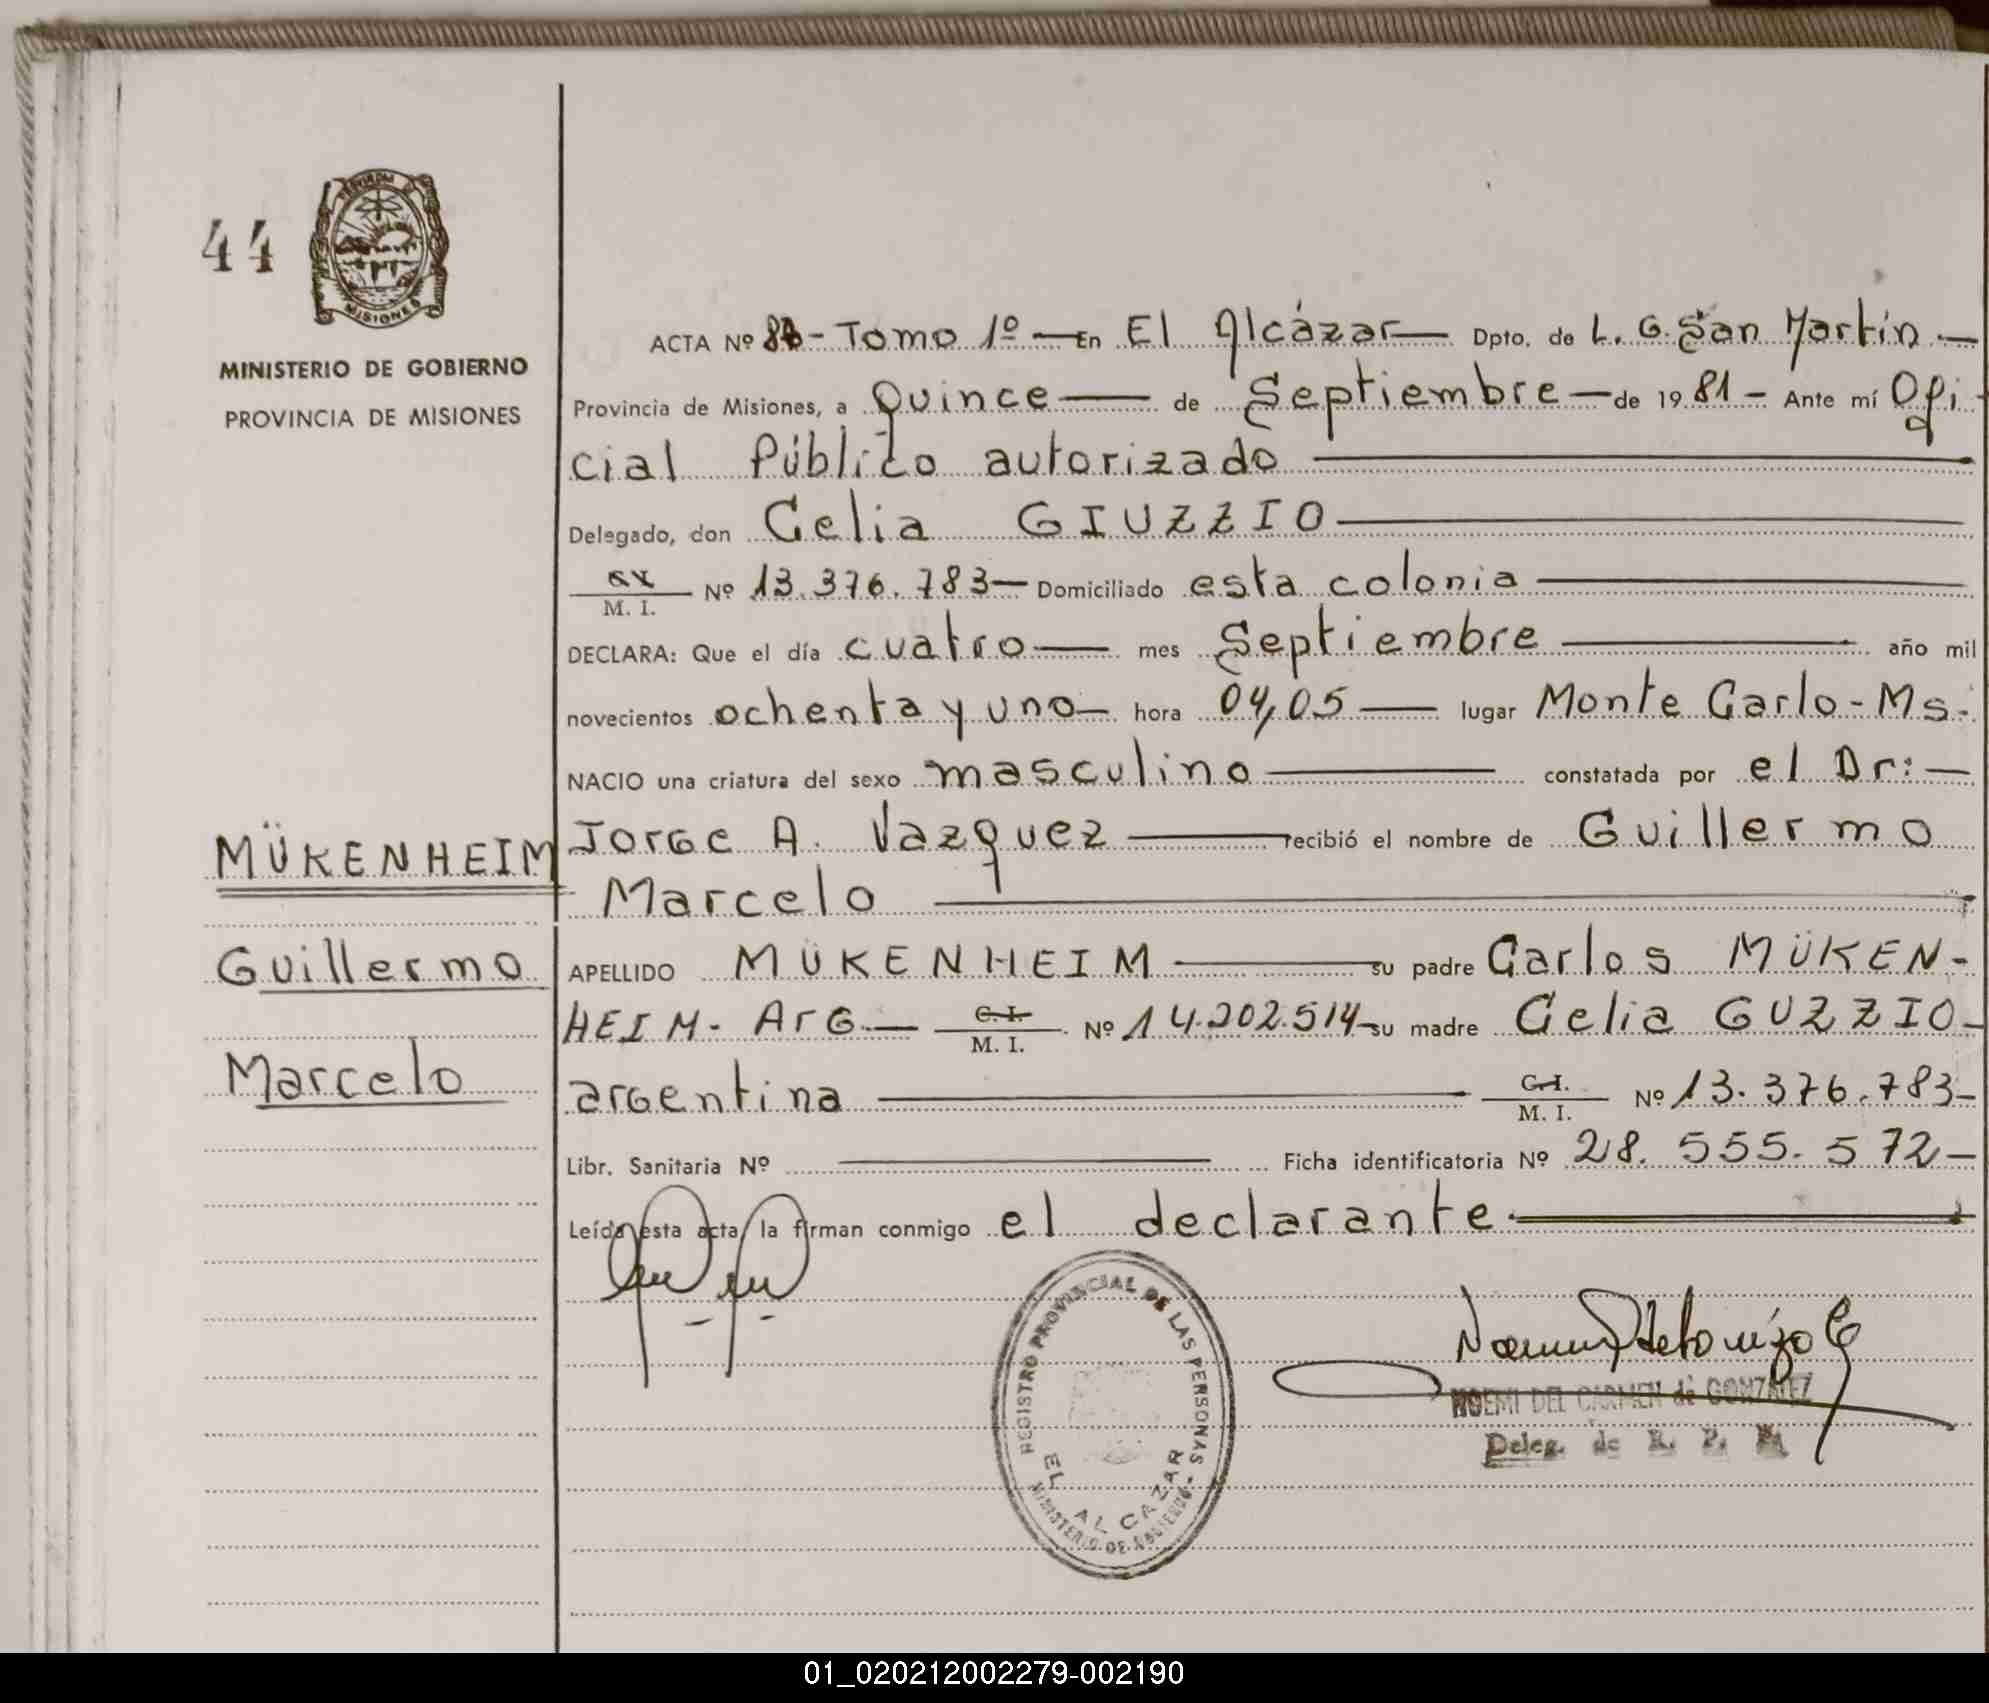 44
PROVINCIA DE
MISIONES
MINISTERIO DE GOBIERNO
PROVINCIA DE MISIONES
ACTA Nº - Tomo 1º — En El Alcázar — Dpto. de L. G. San Martín —
Provincia de Misiones, a Quince — de Septiembre — de 1981 - Ante mí Ofi-
cial Público autorizado —
Delegado, don Celia GIUZZIO —
M. I. Nº 13.376.783 — Domiciliado esta colonia —
DECLARA: Que el día cuatro — mes Septiembre — año mil
novecientos ochenta y uno — hora 04,05 — lugar Monte Carlo - Ms.
NACIO una criatura del sexo masculino — constatada por el Dr: —
Jorge A. Vazquez — recibió el nombre de Guillermo
Marcelo —
APELLIDO MÜKENHEIM — su padre Carlos MÜKEN-
HEIM - Arg. — C. I. M. I. Nº 14.202.514 - su madre Celia GUZZIO -
argentina — C. I. M. I. Nº 13.376.783 -
Libr. Sanitaria Nº — Ficha identificatoria Nº 28.555.572 -
Leída esta acta, la firman conmigo el declarante —
MÜKENHEIM
Guillermo
Marcelo
REGISTRO PROVINCIAL DE LAS PERSONAS
EL ALCAZAR
MINISTERIO DE GOBIERNO
NOEMI DEL CARMEN de GONZALEZ
Deleg. de R. P.
01_020212002279-002190